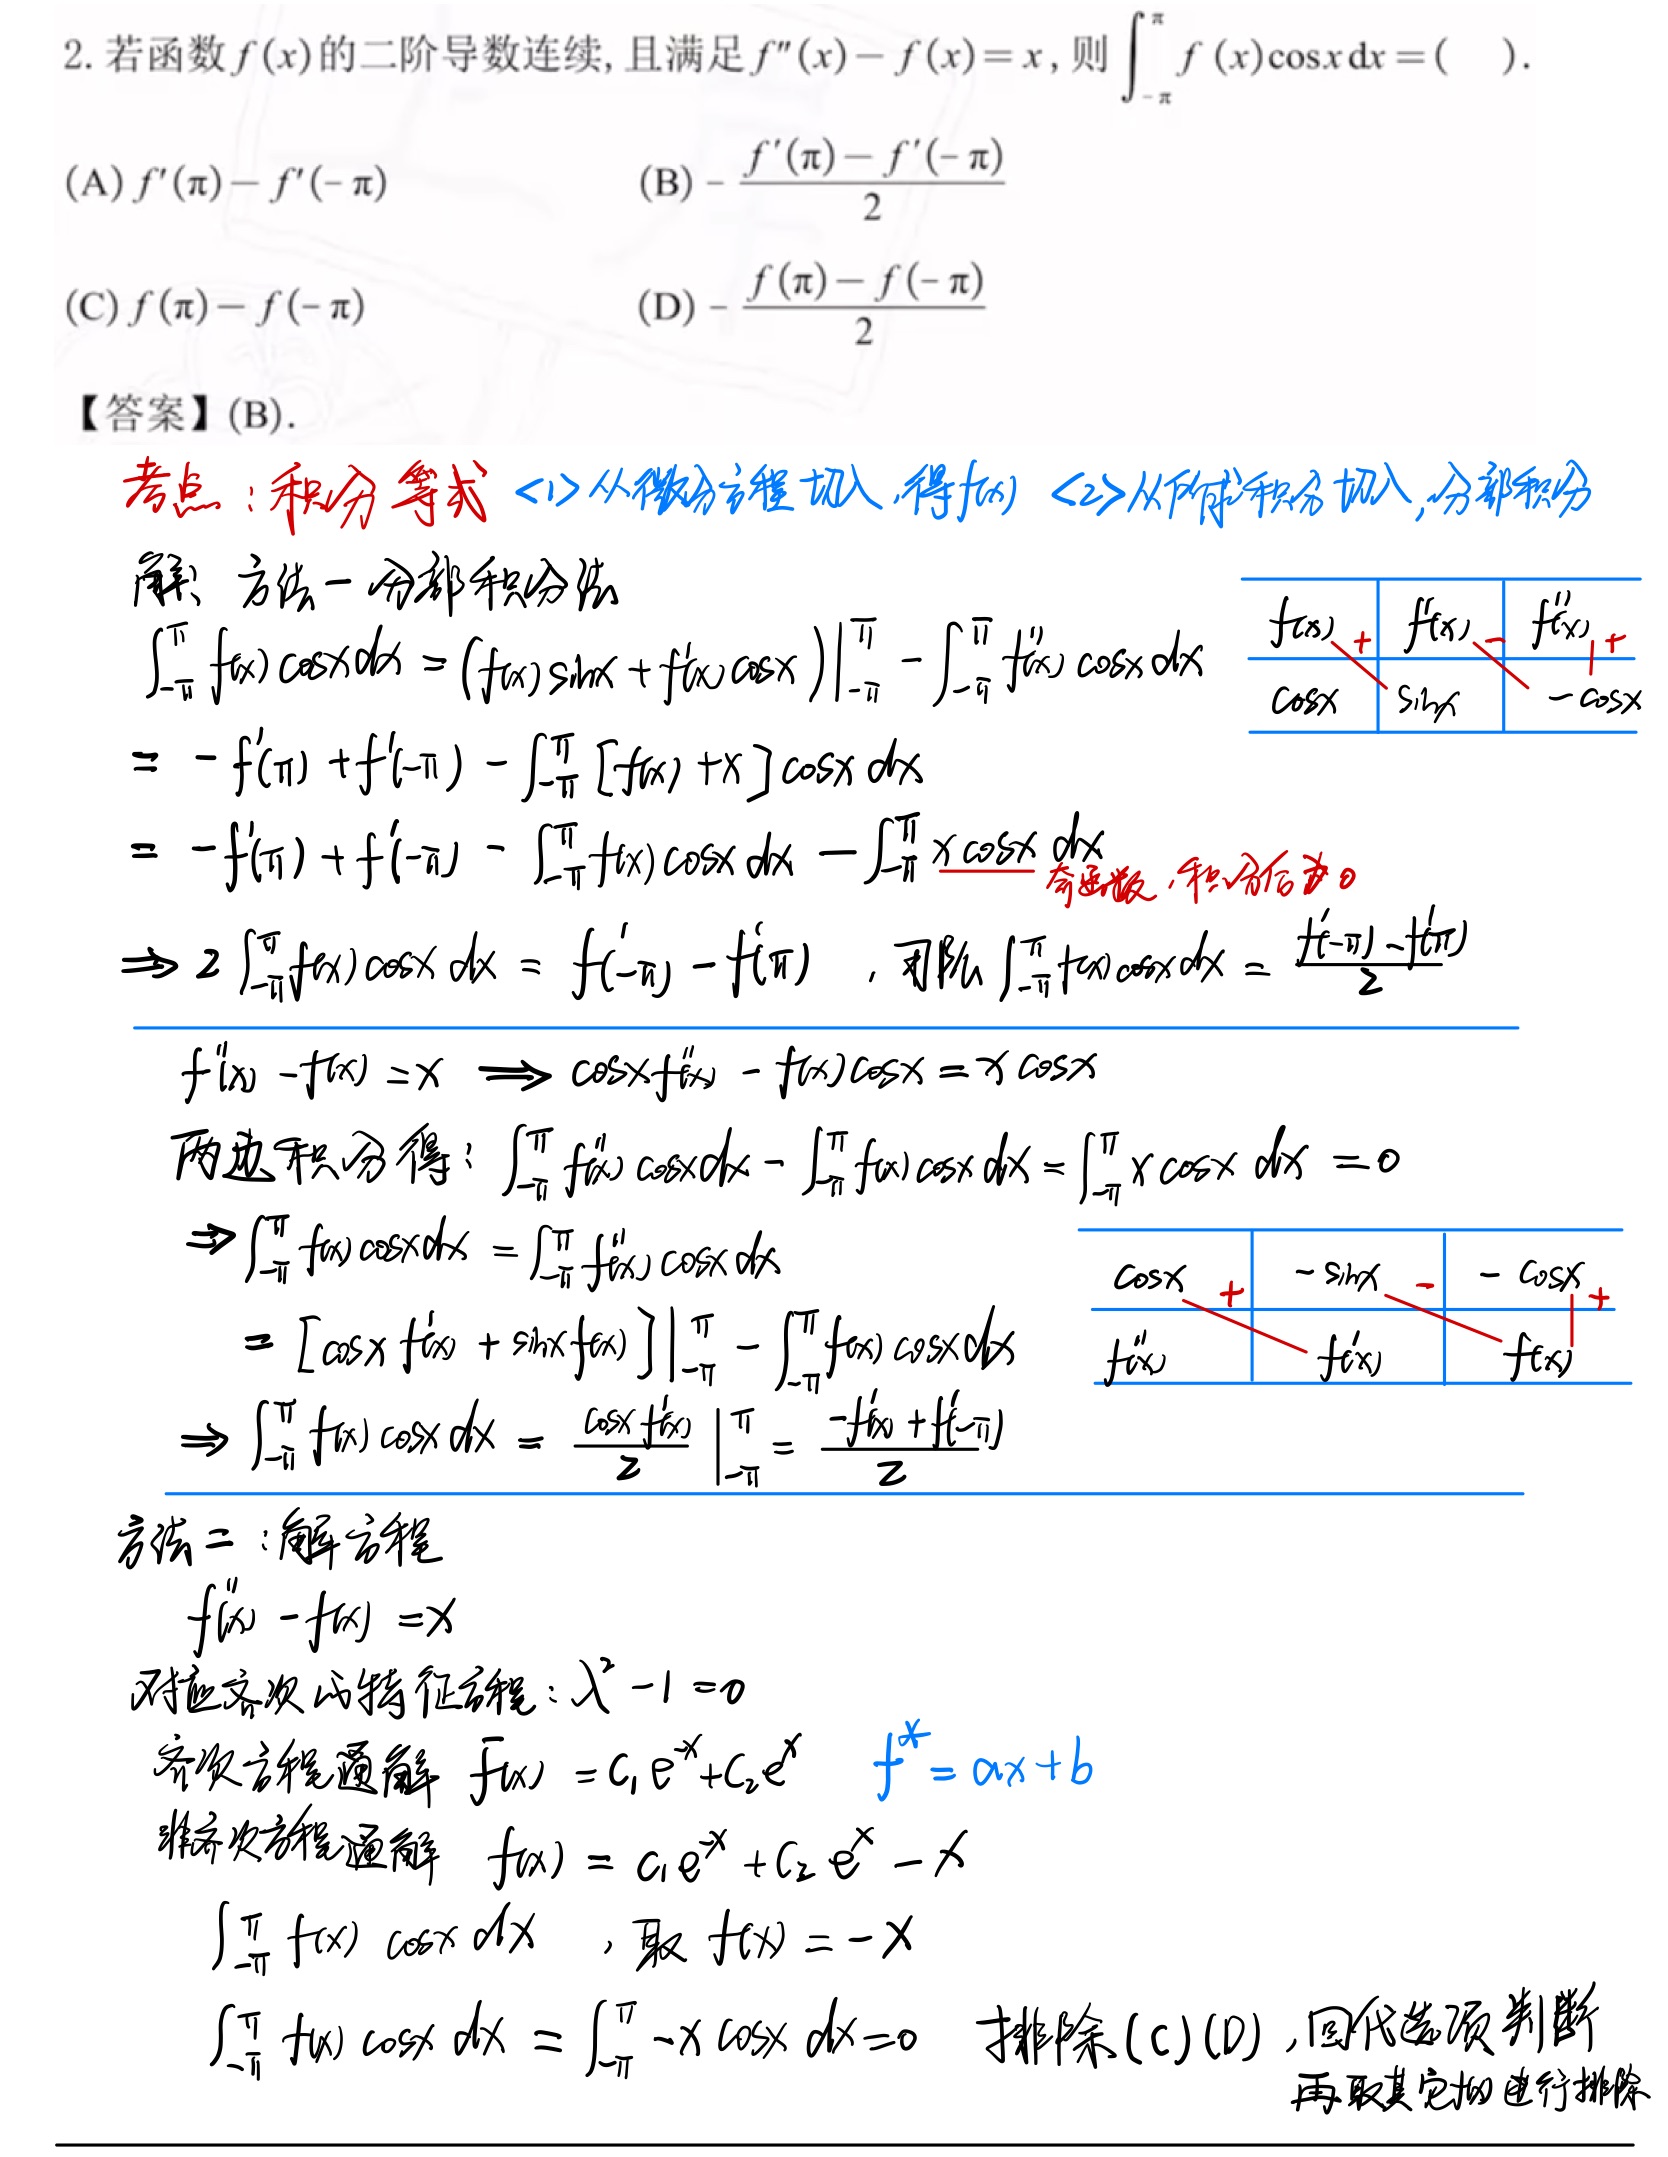 2. 若函数f(x)的二阶导数连续,且满足f″(x)－f(x)＝x,则∫_{-π}^{π} f(x)cosxdx＝(　).
(A) f′(π)－f′(-π)　(B) -\frac{f′(π)－f′(-π)}{2}
(C) f(π)－f(-π)　(D) -\frac{f(π)－f(-π)}{2}
【答案】(B).
考点：积分等式 <1>从微分方程切入,得f(x) <2>从所求积分切入,分部积分
解、方法一 分部积分法
∫_{-π}^{π} f(x)cosxdx = (f(x)sinx+f′(x)cosx)|_{-π}^{π} - ∫_{-π}^{π} f″(x)cosxdx
f(x) + f′(x) - f″(x) +
cosx sinx -cosx
= -f′(π)+f′(-π) - ∫_{-π}^{π}[f(x)+x]cosxdx
= -f′(π)+f′(-π) - ∫_{-π}^{π}f(x)cosxdx - ∫_{-π}^{π}xcosxdx
奇函数,积分后为0
⇒ 2∫_{-π}^{π}f(x)cosxdx = f′(-π)-f′(π) ,可 ∫_{-π}^{π}f(x)cosxdx = \frac{f′(-π)-f′(π)}{2}
f″(x)-f(x)=x ⟹ cosxf″(x)-f(x)cosx=xcosx
两边积分得：∫_{-π}^{π}f″(x)cosxdx-∫_{-π}^{π}f(x)cosxdx=∫_{-π}^{π}xcosxdx=0
⇒∫_{-π}^{π}f(x)cosxdx=∫_{-π}^{π}f″(x)cosxdx
cosx + -sinx - -cosx +
f″(x) f′(x) f(x)
=[cosxf′(x)+sinxf(x)]|_{-π}^{π} - ∫_{-π}^{π}f(x)cosxdx
⇒∫_{-π}^{π}f(x)cosxdx = \frac{cosxf′(x)}{2}|_{-π}^{π} = \frac{-f′(π)+f′(-π)}{2}
方法二：解方程
f″(x)-f(x)=x
对应齐次的特征方程：λ²-1=0
齐次方程通解 f(x)=C₁e^{-x}+C₂e^{x} f*=ax+b
非齐次方程通解 f(x)=C₁e^{-x}+C₂e^{x}-x
∫_{-π}^{π}f(x)cosxdx ,取f(x)=-x
∫_{-π}^{π}f(x)cosxdx=∫_{-π}^{π}-xcosxdx=0 排除(C)(D),回代选项判断
再取其它 进行排除